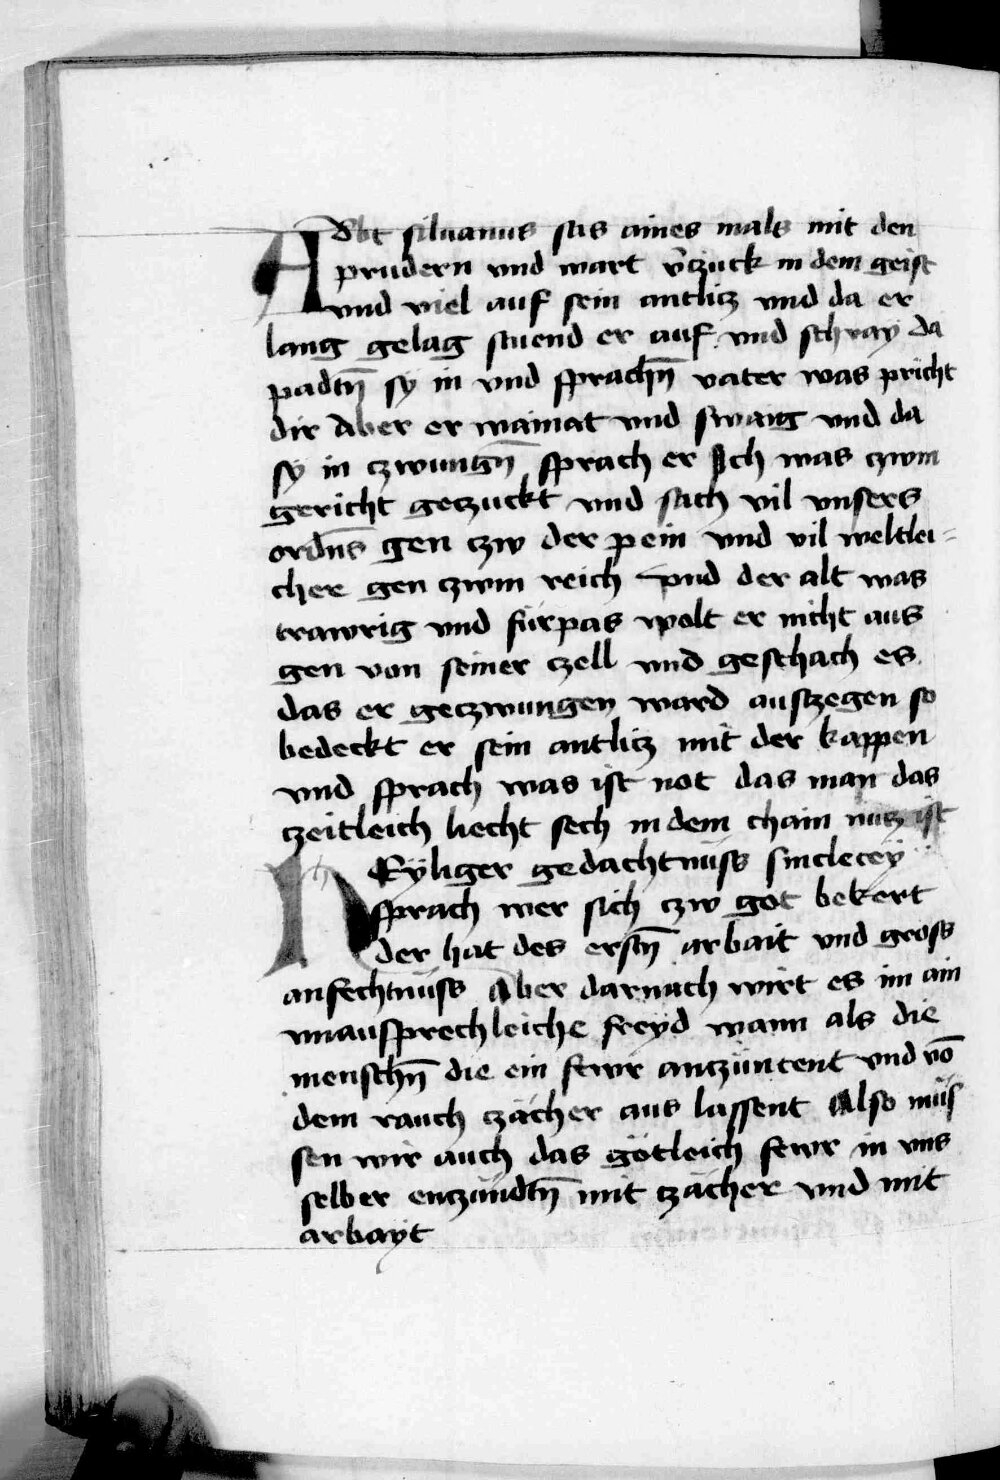 Abt siluanus sas aines mals mit den
prudern vnd wart v̄czuck in dem geist
vnd viel auf sein antlicz vnd da er
lang gelag stuend er auf vnd schray da
padtn̄ sy in vnd sprachn̄ vater was pricht
dir Aber er wainat vnd swaig vnd da
sy in czwungn̄ sprach er Ich was czwm
gericht geczuckt vnd sach vil vnsers
ordn̄s gen czw der pein vnd vil weltlei=
cher gen czwm reich vnd der alt was
trawrig vnd fürpas wolt er nicht aus
gen von seiner czell vnd geschach es
das er geczwungen ward ausczegen so
bedeckt er sein antlicz mit der kappen
vnd sprach was ist not das man das
czeitleich liecht sech in dem chain nucz ist
HEyliger gedachtnüss sincletey
sprach wer sich czw got bekert
der hat des erstn̄ arbait vnd gross
anfechtnüss Aber darnach wirt es im ain
vnaussprechleiche freyd wann als die
menschn̄ die ein fewr anczüntent vnd vō
dem rauch czächer aus lassent Also müs
sen wir auch das götleich fewr in vns
selber enczündtn̄ mit czächer vnd mit
arbayt